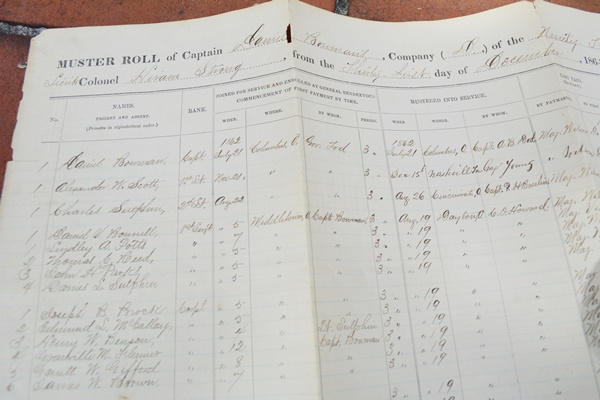 MUSTER ROLL of Captain Daniel Bowman, Company (D) of the Ninety
Lieut Colonel Hiram Strong, from the Thirty first day of December, 186
JOINED FOR SERVICE AND ENROLLED AT GENERAL RENDEZVOUS
COMMENCEMENT OF FIRST PAYMENT BY TIME.
MUSTERED INTO SERVICE.
No. NAMES. PRESENT AND ABSENT. (Privates in alphabetical order.) RANK. WHEN. WHERE. BY WHOM. PERIOD. WHEN. WHERE. BY WHOM. BY PAYMASTER.
1862 1862
1 Daniel Bowman Capt July 21 Columbus, O. Gov. Tod 3 July 21 Columbus, O Capt A. B. Maj.
1 Alexander W. Scott 1st Lt. Nov 21 " " 3 " Dec 15 Nashville Capt Young "
1 Charles Sutphin 2d Lt. Aug 22 " " 3 " Aug 26 Cincinnati, O Capt Maj.
1 Daniel Bonnell 1st Sergt " 5 Middletown, O Capt Bowman 3 " Aug 19 Dayton, O Howard Maj.
1 Lindley A. Potts " " 7 " " 3 " " 19 " " Maj.
2 Thomas C. Reed " " 5 " " 3 " " 19 " " Maj.
3 John H. " " 5 " " 3 " " 19 " " Maj.
4 Daniel L. Sutphin " " " " 3 " " 19 " " Maj.
1 Joseph B. Brock Corpl " 5 " " 3 " " 19 " "
2 Edmund L. McCallay " " 5 " Lt. Sutphin 3 " " 19 " "
3 Henry W. Denson " " " Capt. Bowman 3 " " 19 " "
4 Granville M. " " 12 " " 3 " " 19 " "
5 Garett W. Gifford " " 8 " "
6 James W. Brown " " 7 " " 3 " " 19 " "